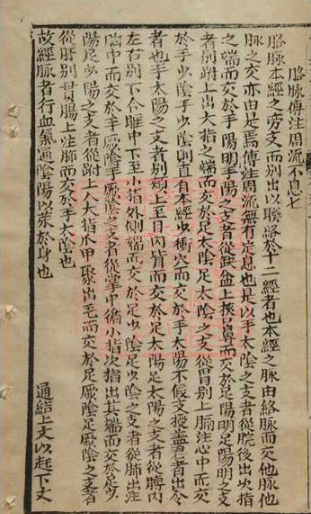 胳脉傳注周流不息七
胳脉本經之旁支而别出以聯絡於十二經者也本經之脉由絡脉而交他脉他
脉之交亦由是焉傳注周流無有定息也是以手太陰之支者從腕後出次指
之端而交於手陽明手陽之支者從缺盆上挾口鼻而交於足陽明足陽明之支
者别跗上出大指之端而交於足太陰足太陰之支從胃别上膈注心中而交
於手少陰手少陰則直自本經少衝穴而交於手太陽不假支授盖君者出令
者也手太陽之支者别頰上至目内眥而交於足太陽足太陽之支者從膊内
左右别下合膕中下至小指外側端而交於足少陰足少陰之支者從肺出注
胸中而交於手厥陰手厥陰之支者從掌中循小指次指出其端而交於手少
陽足少陽之支者從跗上入大指爪甲聚出毛而交於足厥陰足厥陰之支者
從肝别貫膈上注肺而交於手太陰也
故經脉者行血氣通陰陽以荣於身也
通結上文以起下文